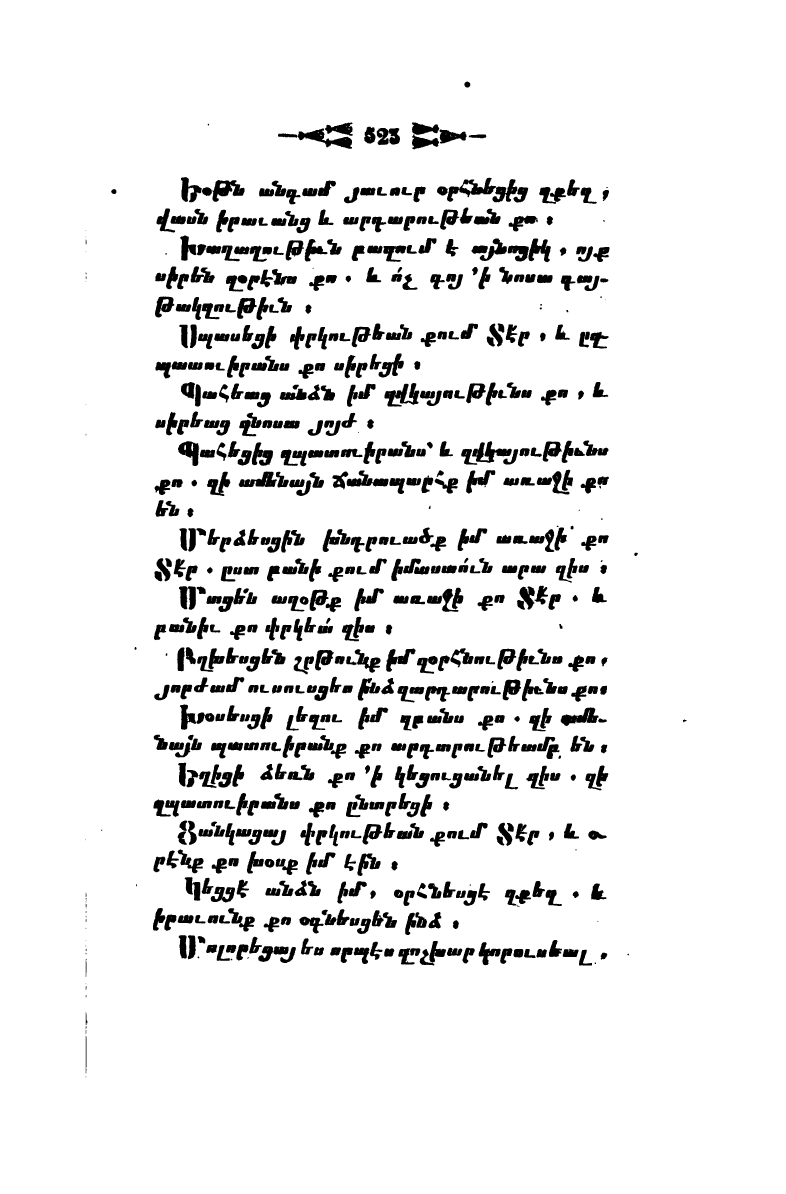 523
Եօթն անգամ յաւուր օրհնեցից զքեզ,
վասն իրաւանց և արդարութեան քո ։
Խաղաղութիւն բազում է այնոցիկ, ոյք
սիրեն զօրէնս քո . և ո՛չ գոյ ՚ի նոսա գայ-
թակղութիւն ։
Սպասեցի փրկութեան քում Տէր, և ըզ-
պատուիրանս քո սիրեցի ։
Պահեաց անձն իմ զվկայութիւնս քո, և
սիրեաց զնոսա յոյժ ։
Պահեցից զպատուիրանս՝ և զվկայութիւնս
քո . զի ամենայն ճանապարհք իմ առաջի քո
են ։
Մերձեսցին խնդրուածք իմ առաջի քո
Տէր . ըստ բանի քում իմաստուն արա զիս ։
Մտցեն աղօթք իմ առաջի քո Տէր . և
բանիւ քո փրկեա՛ զիս ։
Բղխեսցեն շրթունք իմ զօրհնութիւնս քո,
յորժամ ուսուսցես ինձ զարդարութիւնս քո։
Խօսեսցի լեզու իմ զբանս քո . զի ամե-
նայն պատուիրանք քո արդարութեամբ են ։
Եղիցի ձեռն քո ՚ի կեցուցանել զիս . զի
զպատուիրանս քո ընտրեցի ։
Ցանկացայ փրկութեան քում Տէր, և օ-
րէնք քո խօսք իմ էին ։
Կեցցէ անձն իմ, օրհնեսցէ զքեզ . և
իրաւունք քո օգնեսցեն ինձ ։
Մոլորեցայ ես որպէս զոչխար կորուսեալ,